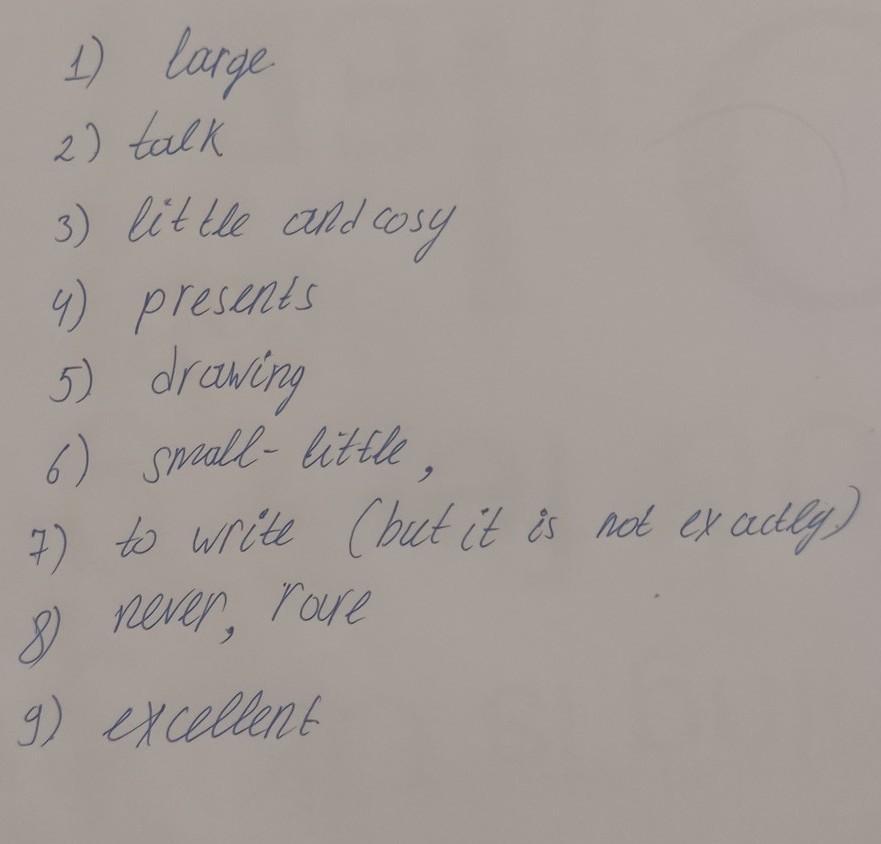 1) large
2) talk
3) little and cosy
4) presents
5) drawing
6) small- little,
7) to write (but it is not exactly)
8) never, rare
9) excellent